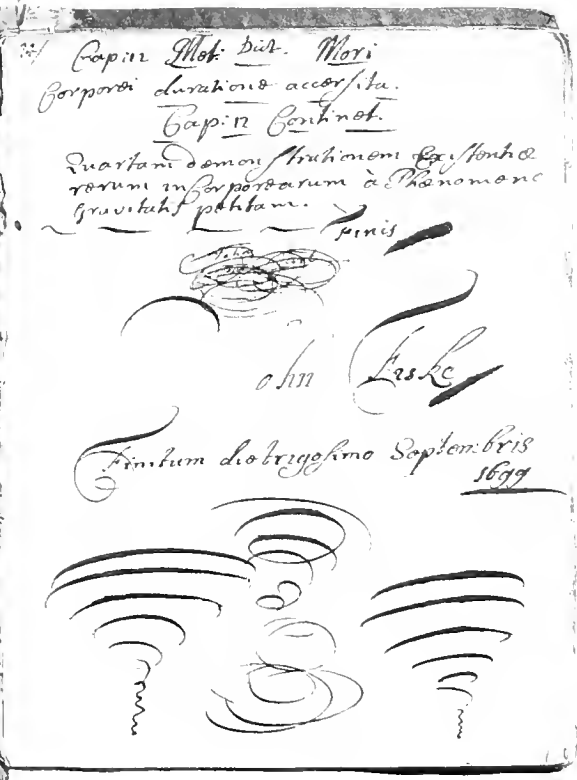 Cap: 11 Met: dict. Mori
Corporei duratione accersita.
Cap: 12 Continet.
Quartam demonstrationem Existentiæ
rerum inCorporearum à Phænomene
Gravitatis petitam.
Finis
John Fiske
Finitum die trigesimo Septembris
1699